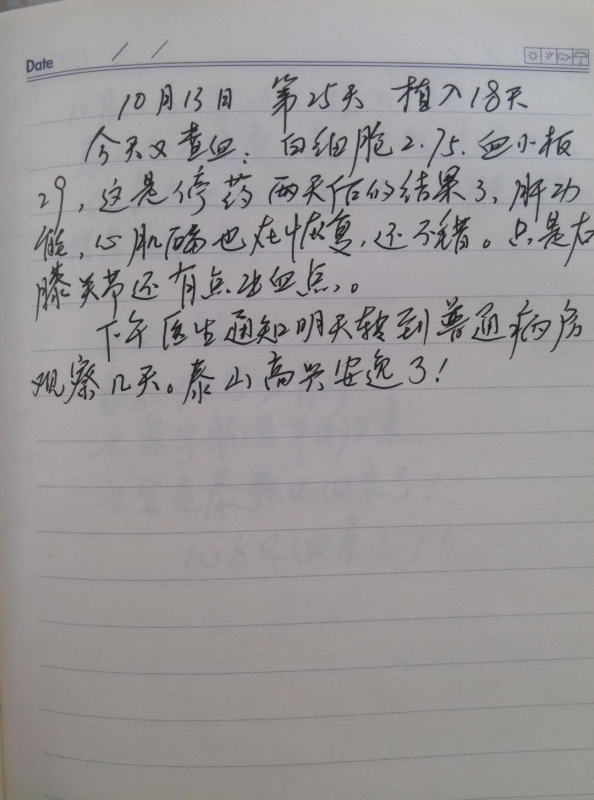 Date / /
10月13日 第25天 植入18天
今天又查血：白细胞2.75.血小板
29，这是停药两天后的结果了，肝功
能，心肌酶也在恢复，还不错。只是右
膝关节还有点出血点。
下午医生通知明天转到普通病房
观察几天。泰山高兴安逸了！